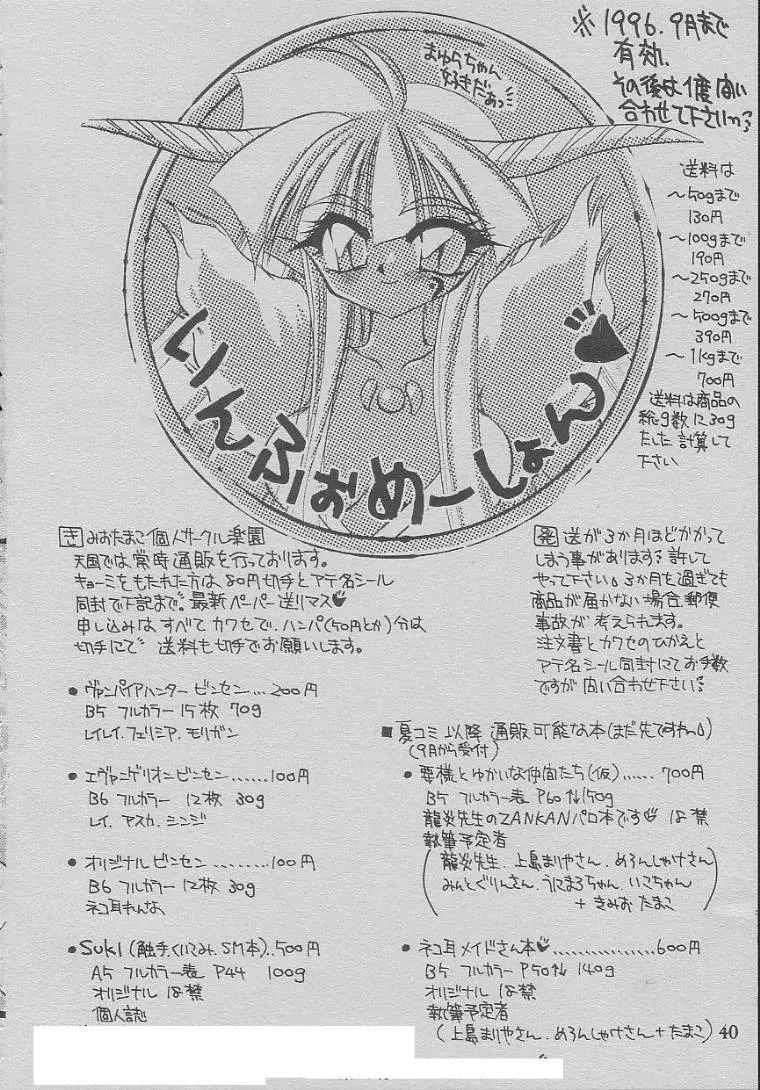 ※1996.9月まで
有効.
その後は1度問い
合わせて下さいっ
まゆらちゃん
好きだあっ
送料は
～50gまで
130円
～100gまで
190円
～250gまで
270円
～500gまで
390円
～1kgまで
700円
送料は商品の
総g数に30g
たした計算して
下さい
いんふぉめーしょん♥
きみおたまこ個人サークル楽園
天国では常時通販を行っております。
キョーミをもたれた方は80円切手とアテ名シール
同封で下記まで最新ペーパー送りマス♥
申し込みは、すべてカワセで、ハンパ(50円とか)分は
切手にて 送料も切手でお願いします。
発送が3か月ほどかかって
しまう事があります 許して
やって下さい 3か月を過ぎても
商品が届かない場合、郵便
事故が考えられます。
注文書とカワセのひかえと
アテ名シール同封にてお手数
ですが問い合わせ下さい
●ヴァンパイアハンタービンセン...200円
B5 フルカラー 15枚 70g
レイレイ.フェリシア.モリガン
●エヴァンゲリオンビンセン......100円
B6 フルカラー 12枚 30g
レイ.アスカ.シンジ
●オリジナルビンセン........100円
B6 フルカラー 12枚 30g
ネコ耳れんな
●Suki(触手.くいこみ.SM本)..500円
A5 フルカラー表 P44 100g
オリジナル 18禁
個人誌
■夏コミ以降 通販可能な本(まだ先ですねー)
(9月から受付)
●要様とゆかいな仲間たち(仮)......700円
B5 フルカラー表 P60↑↓150g
龍炎先生のZANKANパロ本です♥ 18禁
執筆予定者
(龍炎先生.上島まりやさん.めろんしゃけさん
みんとぐりんさん.うにまろちゃん.いこちゃん
+きみおたまこ)
●ネコ耳メイドさん本♥..................600円
B5 フルカラー P50↑↓ 140g
オリジナル 18禁
執筆予定者
(上島まりやさん.めろんしゃけさん+たまこ)
40